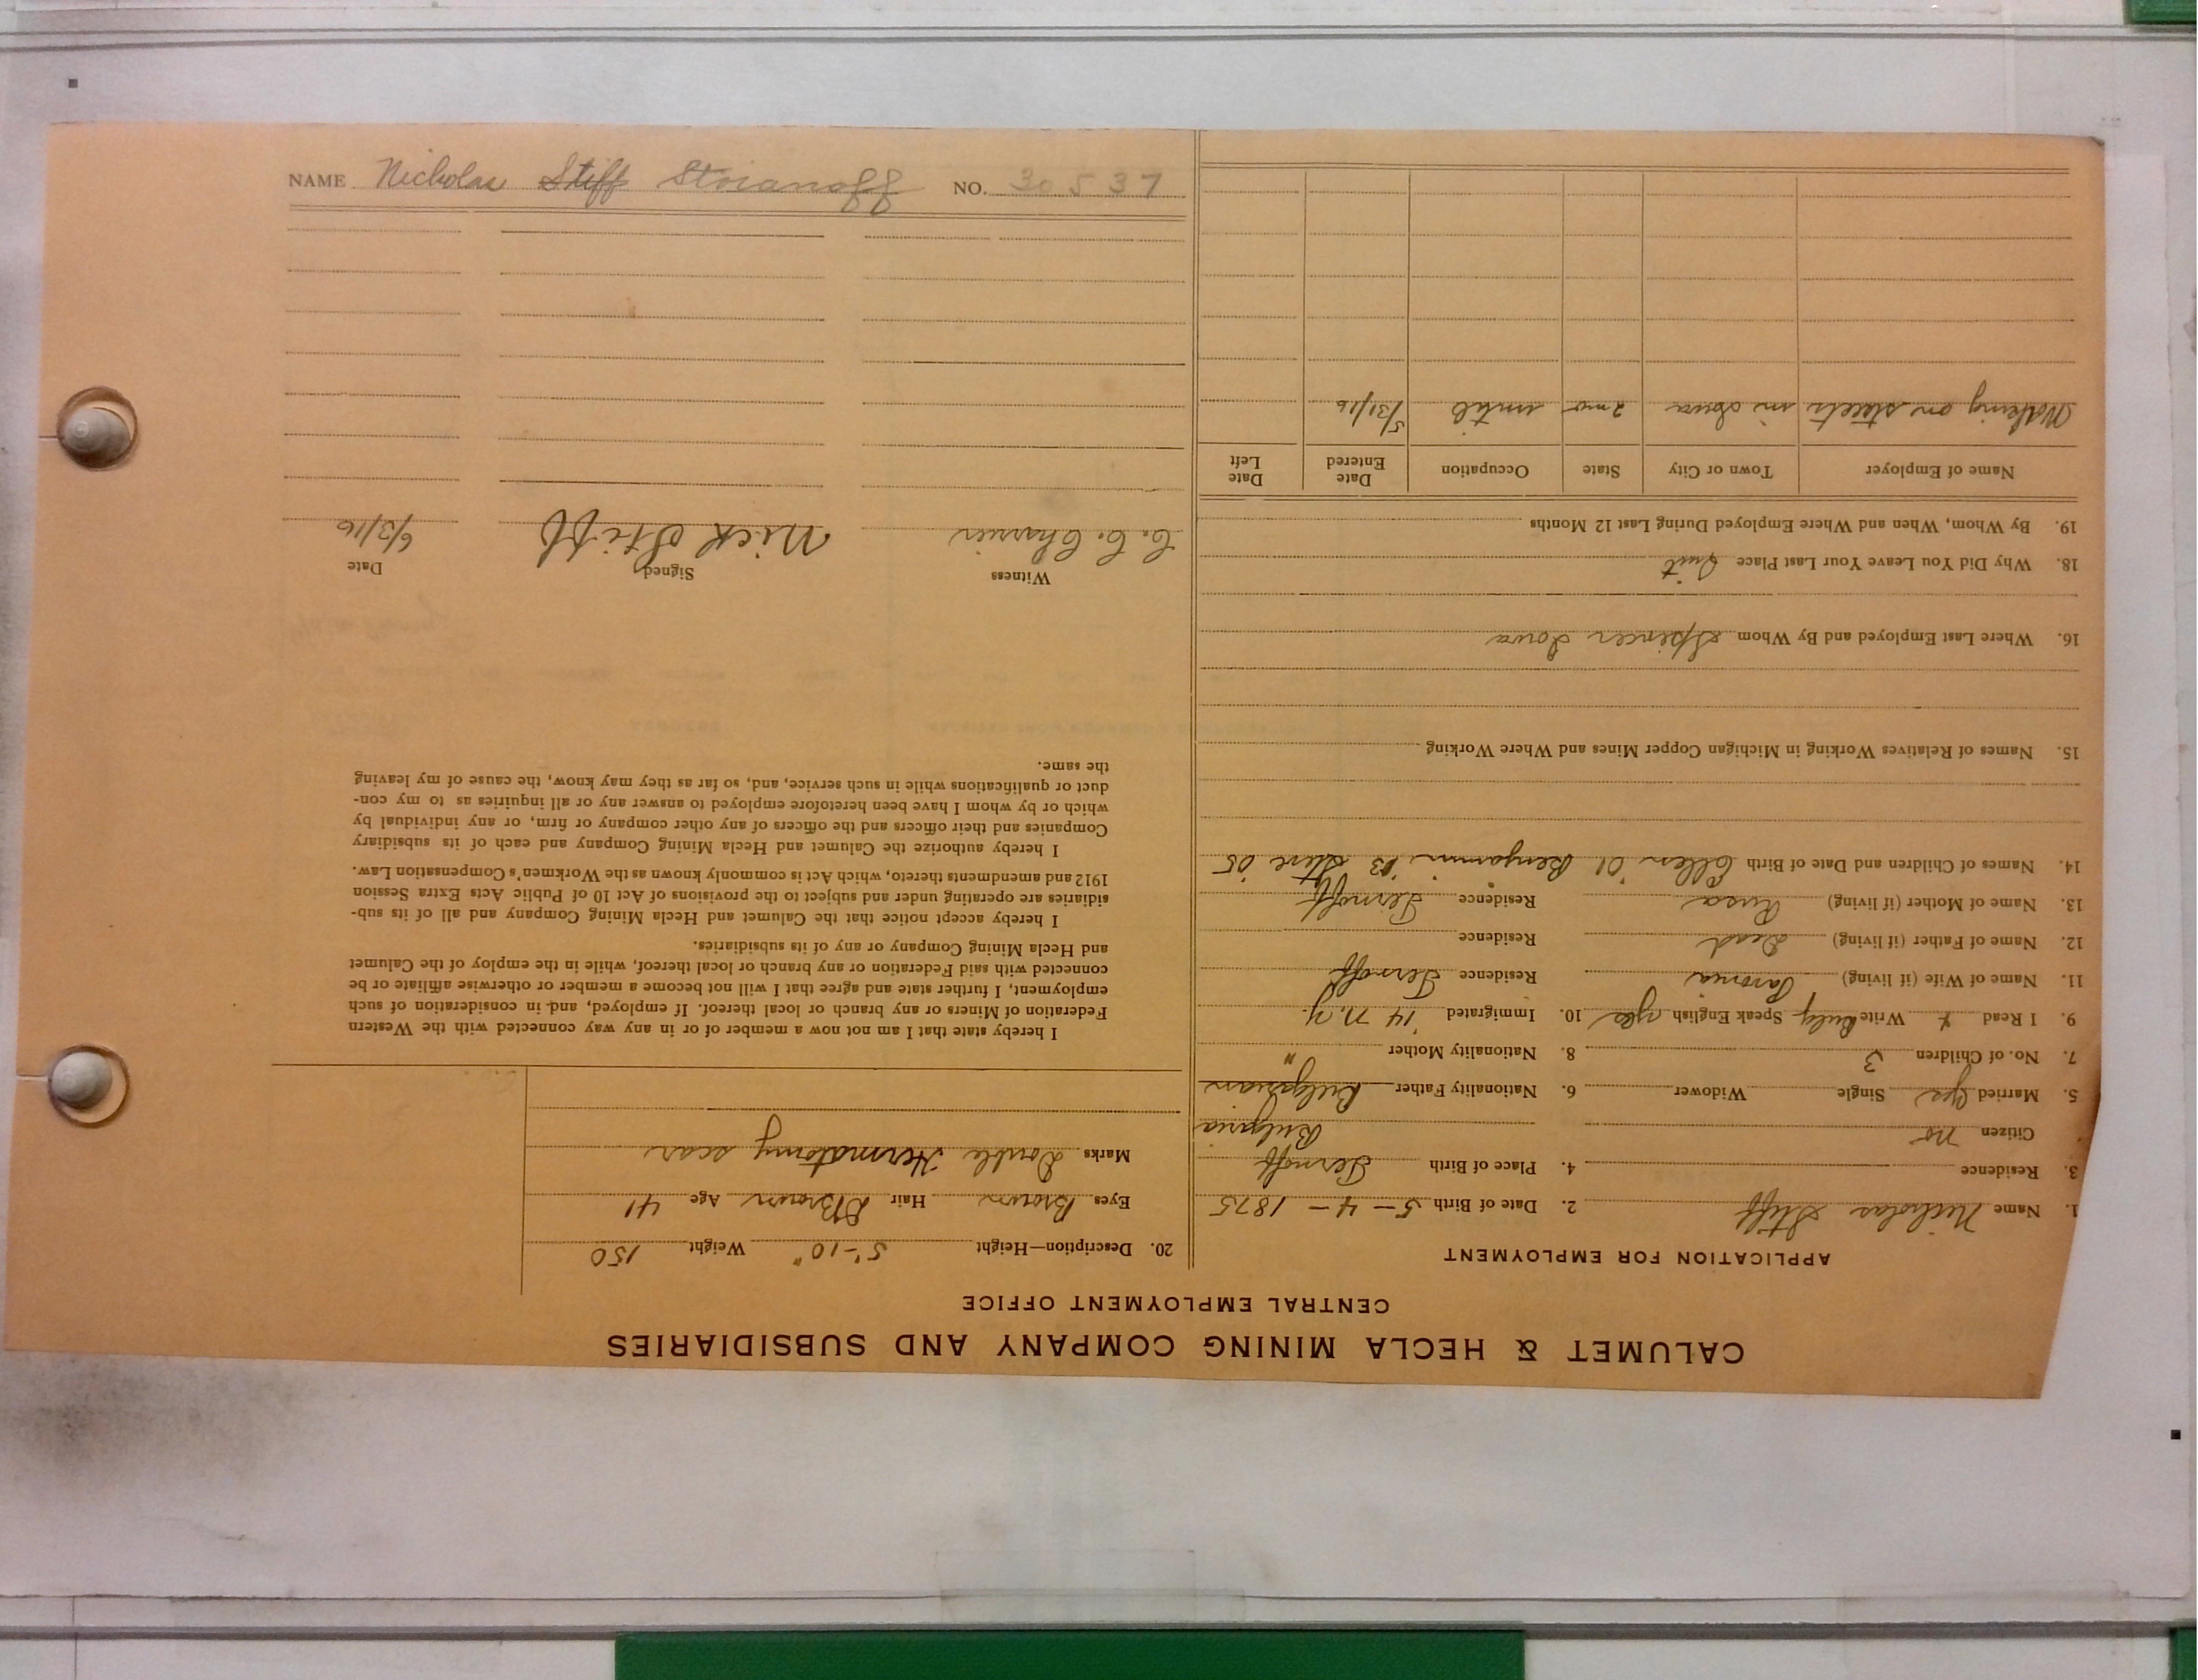 NAME Nicholas Stiff Stoianoff NO. 30537
CALUMET & HECLA MINING COMPANY AND SUBSIDIARIES
CENTRAL EMPLOYMENT OFFICE
APPLICATION FOR EMPLOYMENT
1. Name Nicholas Stiff 2. Date of Birth 5-4-1875
3. Residence 4. Place of Birth Ternoff
Citizen no Bulgaria
5. Married yes Single Widower 6. Nationality Father Bulgarian
7. No. of Children 3 8. Nationality Mother "
9. I Read & Write Bulg Speak English yes 10. Immigrated '14 N.Y.
11. Name of Wife (if living) Residence Ternoff
12. Name of Father (if living) Dead Residence
13. Name of Mother (if living) Rusa Residence Ternoff
14. Names of Children and Date of Birth Ellen '01 Benjamin '03 Steve '05
15. Names of Relatives Working in Michigan Copper Mines and Where Working
16. Where Last Employed and By Whom Spencer Iowa
18. Why Did You Leave Your Last Place Quit
19. By Whom, When and Where Employed During Last 12 Months
Name of Employer Town or City State Occupation Date Entered Date Left
Working on steel in Iowa 2 mo until 5/31/16
20. Description—Height 5'-10" Weight 150
Eyes Brown Hair Brown Age 41
Marks Double Herniotomy scar
I hereby state that I am not now a member of or in any way connected with the Western
Federation of Miners or any branch or local thereof. If employed, and in consideration of such
employment, I further state and agree that I will not become a member or otherwise affiliate or be
connected with said Federation or any branch or local thereof, while in the employ of the Calumet
and Hecla Mining Company or any of its subsidiaries.
I hereby accept notice that the Calumet and Hecla Mining Company and all of its sub-
sidiaries are operating under and subject to the provisions of Act 10 of Public Acts Extra Session
1912 and amendments thereto, which Act is commonly known as the Workmen's Compensation Law.
I hereby authorize the Calumet and Hecla Mining Company and each of its subsidiary
Companies and their officers and the officers of any other company or firm, or any individual by
which or by whom I have been heretofore employed to answer any or all inquiries as to my con-
duct or qualifications while in such service, and, so far as they may know, the cause of my leaving
the same.
Witness Signed Date
C. C. Nick Stiff 6/3/16